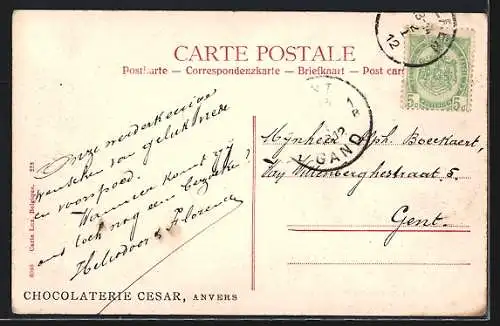 CARTE POSTALE
Postkarte — Correspondenzkarte — Briefkaart — Post card
12
GAND
5c 5c
Onze wederkeerige
wenschen van geluk
en voorspoed.
Wanneer komt gij
ons toch nog een bezoek?
Heliodoor & Florence
Mijnheer Alph. Boeckaert,
Van Willenberghestraat 5.
Gent.
Carte Lux, Belgique. 228
CHOCOLATERIE CESAR, ANVERS